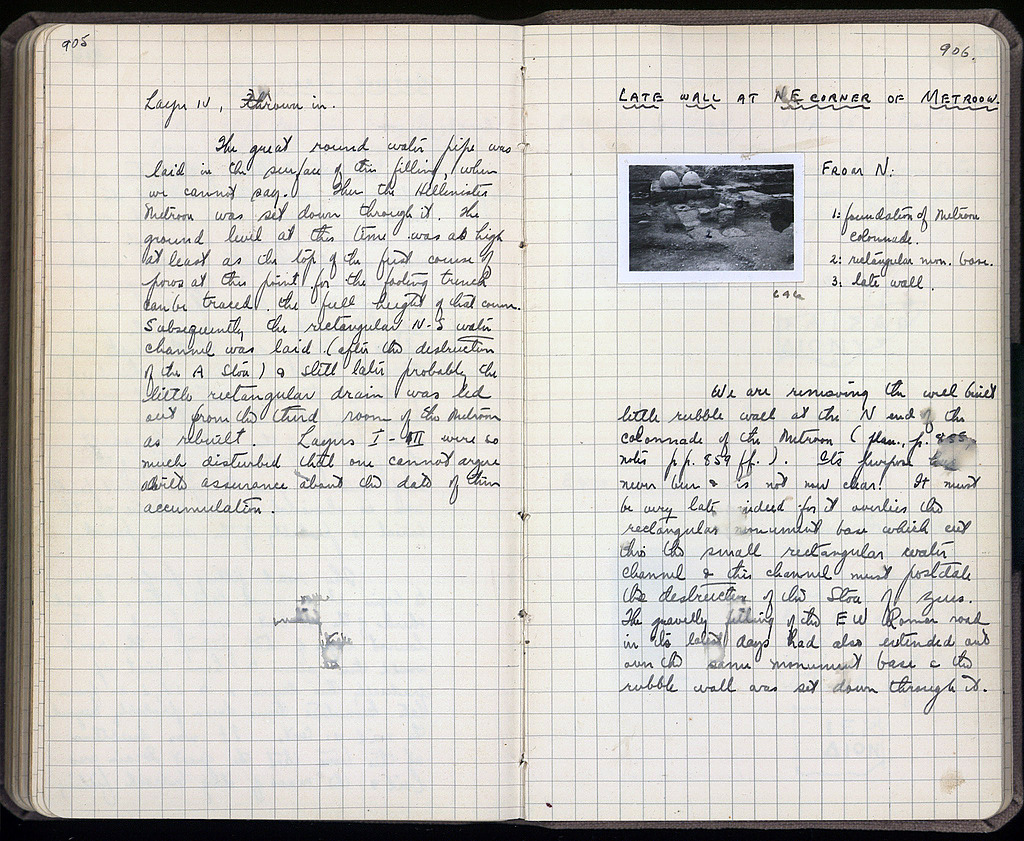 905
Layer IV, thrown in.
The great round water pipe was
laid in the surface of this filling, when
we cannot say. Then the Hellenistic
Metroon was set down through it. The
ground level at this time was as high
at least as the top of the first course of
poros at this point for the footing trench
can be traced the full height of that course.
Subsequently the rectangular N-S water
channel was laid (after the destruction
of the A Stoa) & still later probably the
little rectangular drain was led
out from the third room of the Metroon
as rebuilt. Layers I - III were so
much disturbed that one cannot argue
with assurance about the date of their
accumulation.
906.
LATE WALL AT NE CORNER OF METROON.
FROM N:
1: foundation of Metroon
colonnade.
2: rectangular mon. base.
3: late wall.
646
We are removing the well built
little rubble wall at the N end of the
colonnade of the Metroon (plan, p.
notes pp. 859 ff.). Its purpose
never been & is not now clear. It must
be very late indeed for it overlies the
rectangular monument base which cut
thro the small rectangular water
channel & this channel must postdate
the destruction of the Stoa of Zeus.
The gravelly filling of the E W Roman road
in its latest days had also extended out
over the same monument base & the
rubble wall was set down through it.